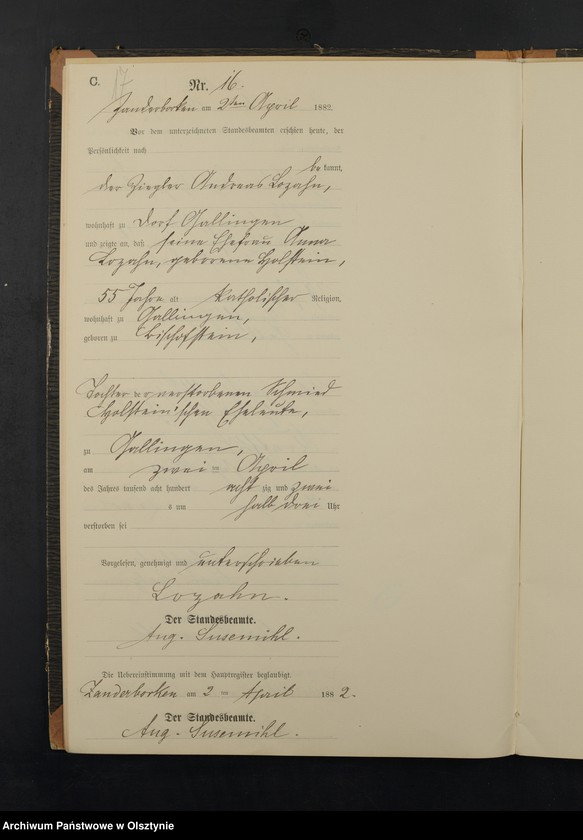 C.
17
Nr. 16.
Zanderborken am 2ten April 1882.
Vor dem unterzeichneten Standesbeamten erschien heute, der
Persönlichkeit nach
be kannt,
der Ziegler Andreas Lozahn,
wohnhaft zu Dorf Gallingen
und zeigte an, daß seine Ehefrau Anna
Lozahn, geborene Holstein,
55 Jahre alt katholischer Religion,
wohnhaft zu Gallingen,
geboren zu Bischofstein,
Tochter verstorbenen Schmied
Holstein'schen Eheleute,
zu Gallingen,
am zwei ten April
des Jahrs tausend acht hundert acht zig und zwei
s um halb drei Uhr
verstorben sei
Vorgelesen, genehmigt und unterschrieben
Lozahn.
Der Standesbeamte.
Aug. Susemihl.
Die Uebereinstimmung mit dem Hauptregister beglaubigt
Zanderborken am 2 ten April 188 2.
Der Standesbeamte.
Aug. Susemihl.
Archiwum Państwowe w Olsztynie